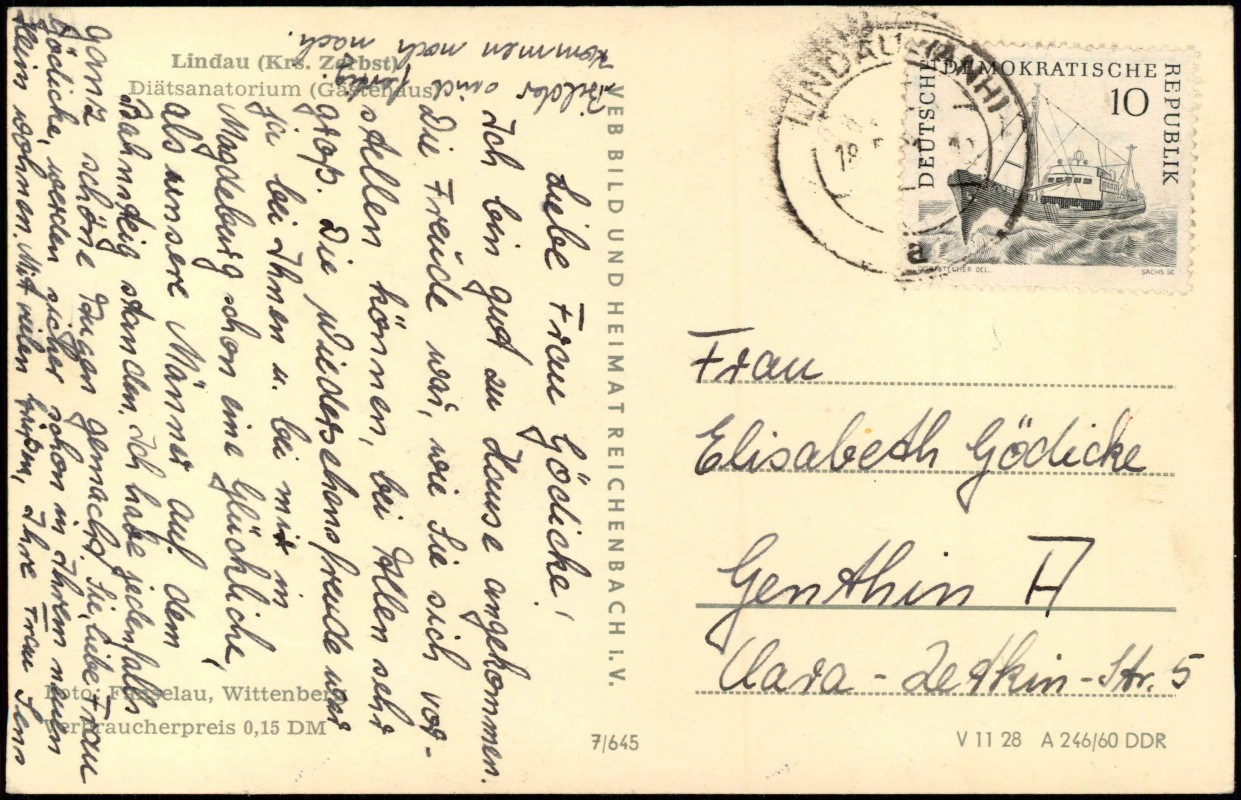 Lindau (Krs. Zerbst)
Diätsanatorium (Gästehaus)
Liebe Frau Gödicke!
Ich bin gut zu Hause angekommen.
Die Freude war, wie Sie sich vor-
stellen können, bei Allen sehr
groß. Die Wiedersehensfreude war
für bei Ihnen u. bei mir in
Magdeburg schon eine Glückliche,
als unsere Männer auf dem
Bahnsteig standen. Ich habe jedenfalls
ganz schöne Augen gemacht. Sie, liebe Frau
Gödicke, werden sicher schon in Ihrem neuen
Heim wohnen. Mit vielen Grüßen, Ihre Frau
Bilder sind fertig.
Kommen noch nach.
Foto: Funselau, Wittenberg
Verbraucherpreis 0,15 DM
VEB BILD UND HEIMAT REICHENBACH I. V.
7/645
LINDAU (ANH)
18
a
DEUTSCHE DEMOKRATISCHE REPUBLIK
10
DEL.
SACHS. SC
Frau
Elisabeth Gödicke
Genthin A
Clara-Zetkin-Str. 5
V 11 28 A 246/60 DDR